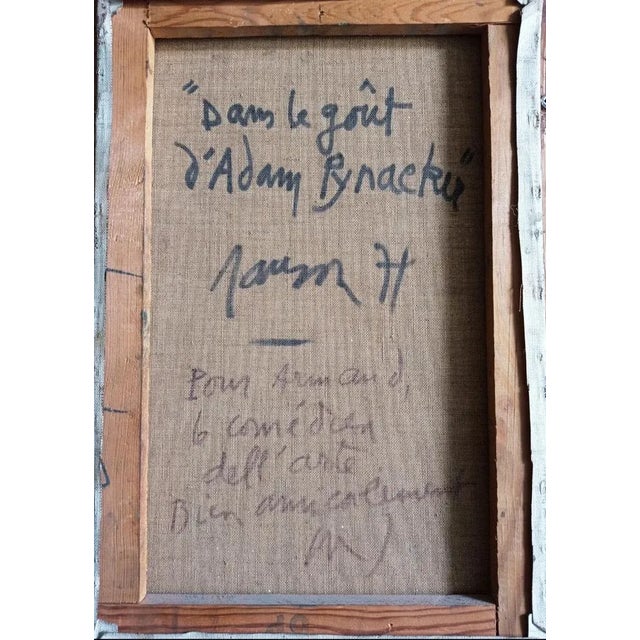 "Dans le goût
d'Adam Pynacker"
71
Pour Armand,
6 comédien
dell'arte
Bien amicalement